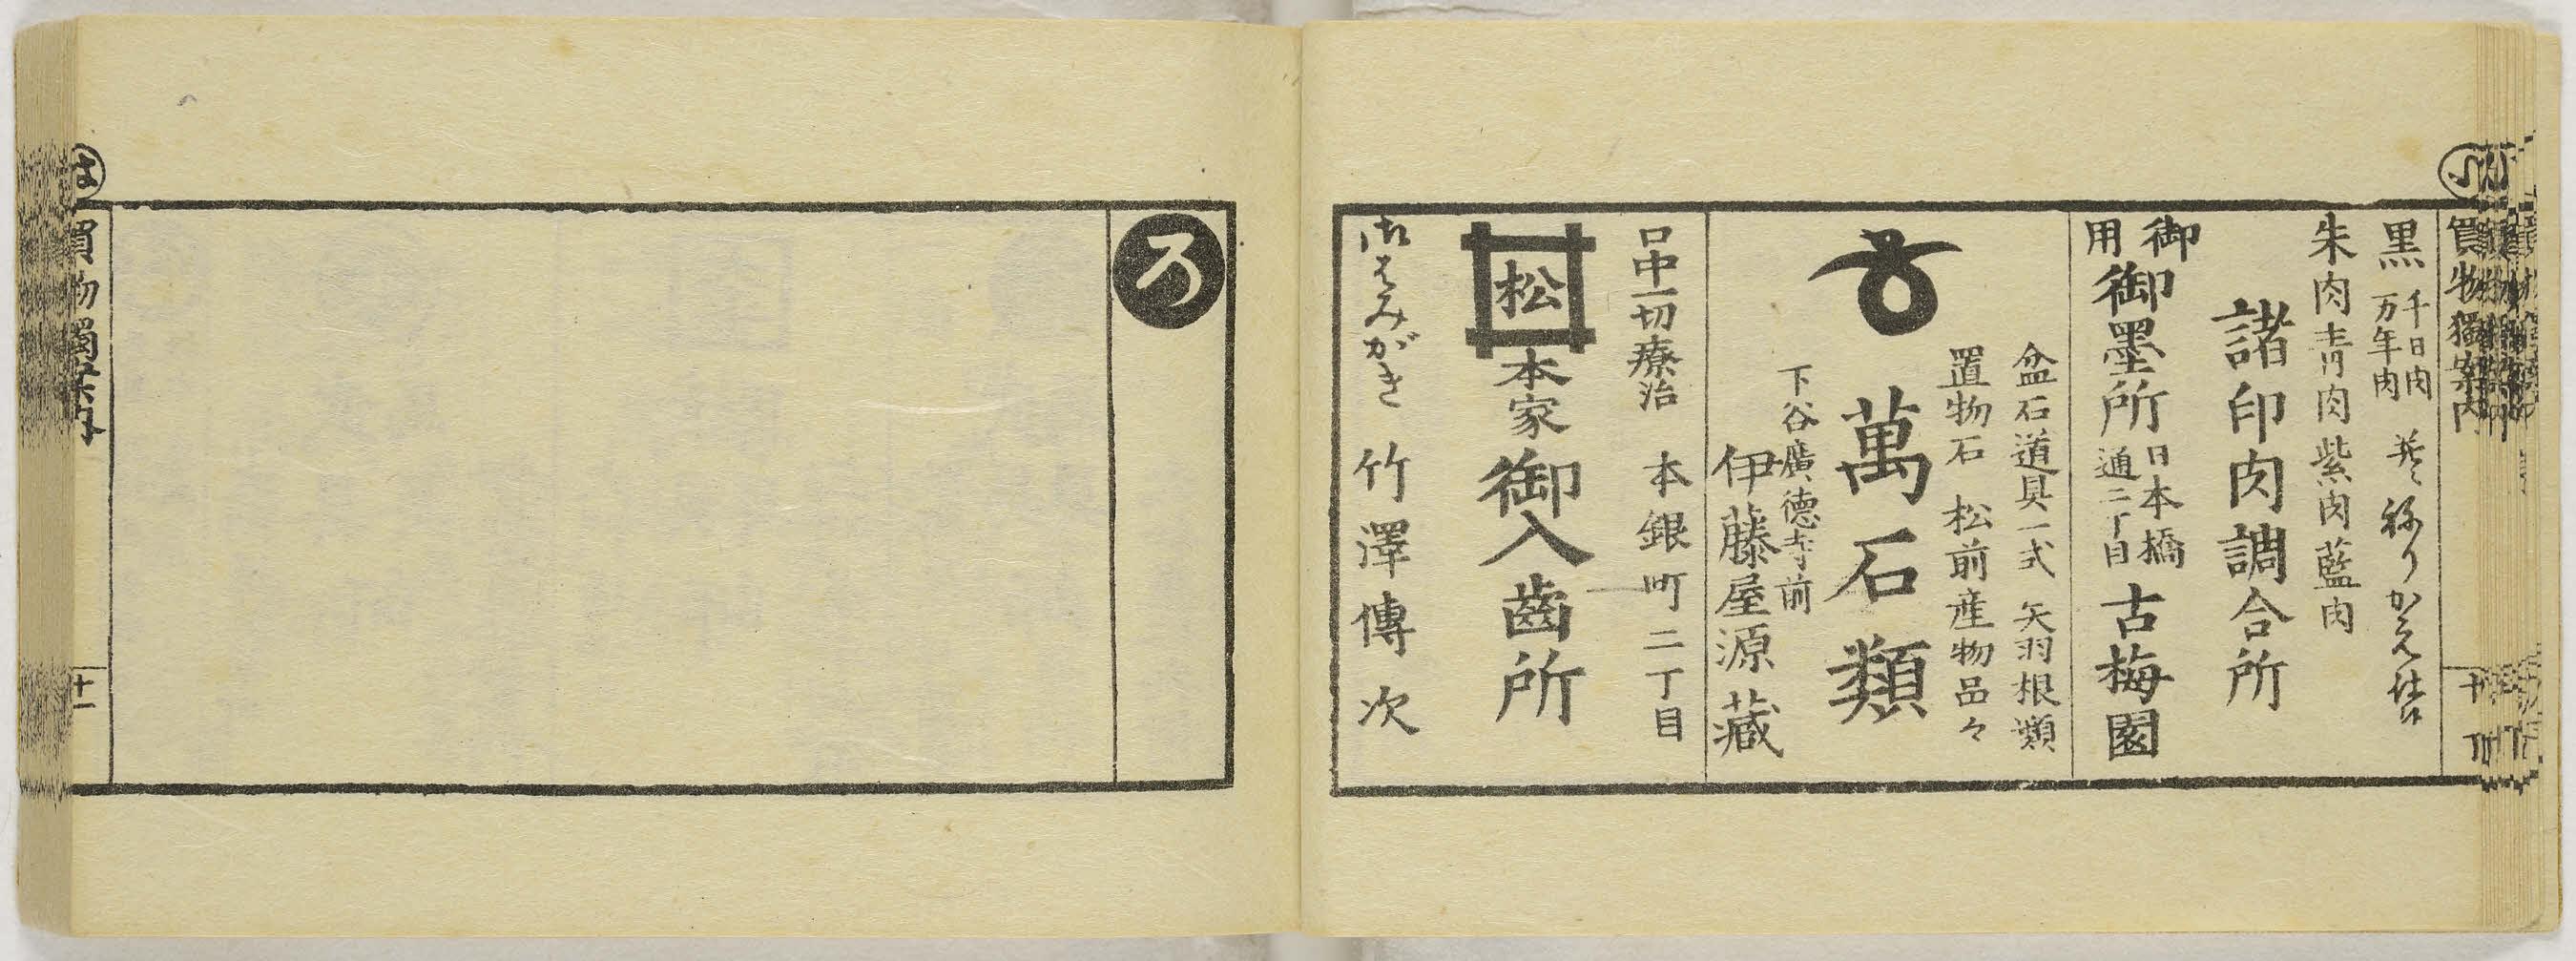 買物獨案内
黒 千日肉
万年肉
ねりかえ仕
朱肉青肉紫肉藍肉
諸印肉調合所
御用
御墨所
日本橋
通二丁目
古梅園
盆石道具一式 矢羽根類
置物石 松前産物品々
萬石類
下谷廣徳寺前
伊藤屋源藏
口中一切療治 本銀町二丁目
松
本家御入齒所
御はみがき 竹澤傳次
ろ
は
買物獨案内
十一